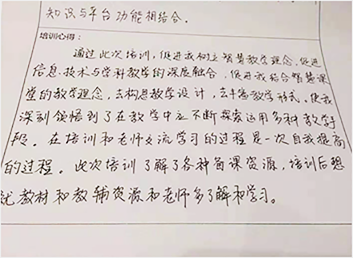 知识与平台功能相结合。
培训心得：
通过此次培训，促进我树立智慧教学理念，促进
信息技术与学科教学的深度融合，促进我结合智慧课
堂的教学理念，去构思教学设计，去丰富教学形式。使我
深刻领悟到了在教学中应不断探索运用多种教学手
段。在培训和老师交流学习的过程是一次自我提高
的过程。此次培训了解了各种备课资源，培训后想
就教材和教辅资源和老师多了解和学习。